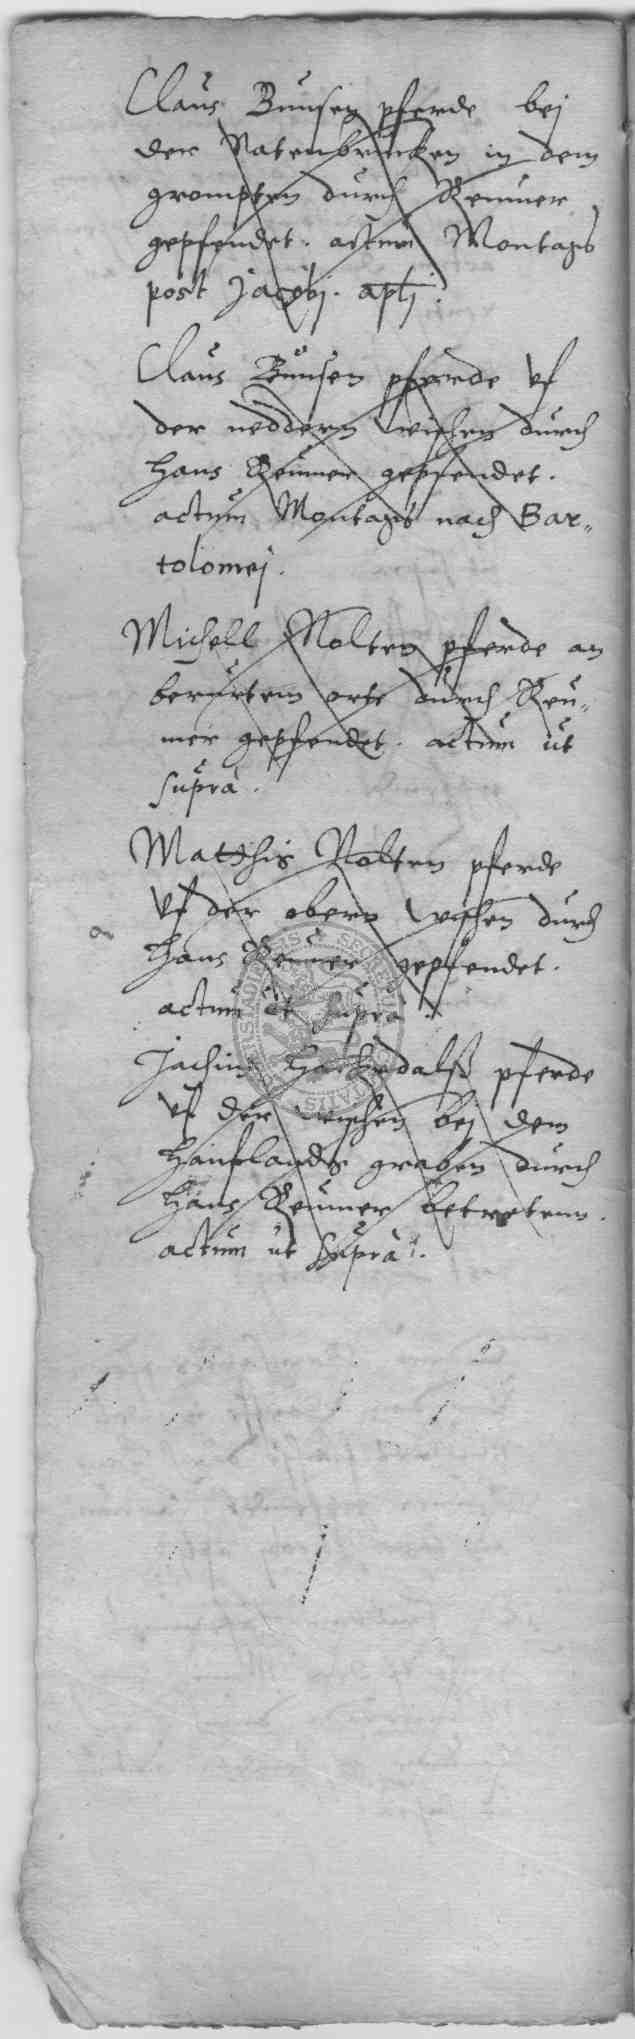 Claus Bunsen pferde bei
der Natenbrucken in dem
grompten durch Remmer
gepfendet. actum Montags
post Jacobj. aplj.
Claus Bunsen pferde vf
der neddern wischen durch
Hans Remmer gepfendet.
actum Montags nach Bar„
tolomej.
Michell Nolten pferde an
berurtem orte durch Rem„
mer gepfendet. actum ut
supra.
Matthis Nolten pferde
vf der obern wischen durch
Hans Remmer gepfendet.
actum ut supra.
Jachim pferde
vf der wischen bei dem
graben durch
Hans Remmer betretenn.
actum ut supra.